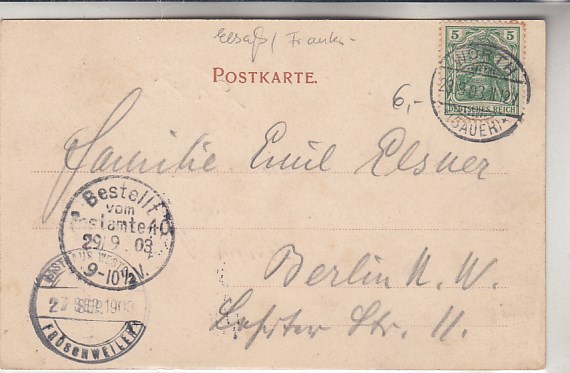 Elsaß / Frankr.
POSTKARTE.
5 5
DEUTSCHES REICH
WÖRTH
(SAUER)
6,-
Familie Emil Elsner
Bestellt
vom
Postamte 40
29/9. 03
9-10½V.
Berlin N. W.
Lehrter Str. 11.
27 SEP. 1903
FRÖSCHWEILER